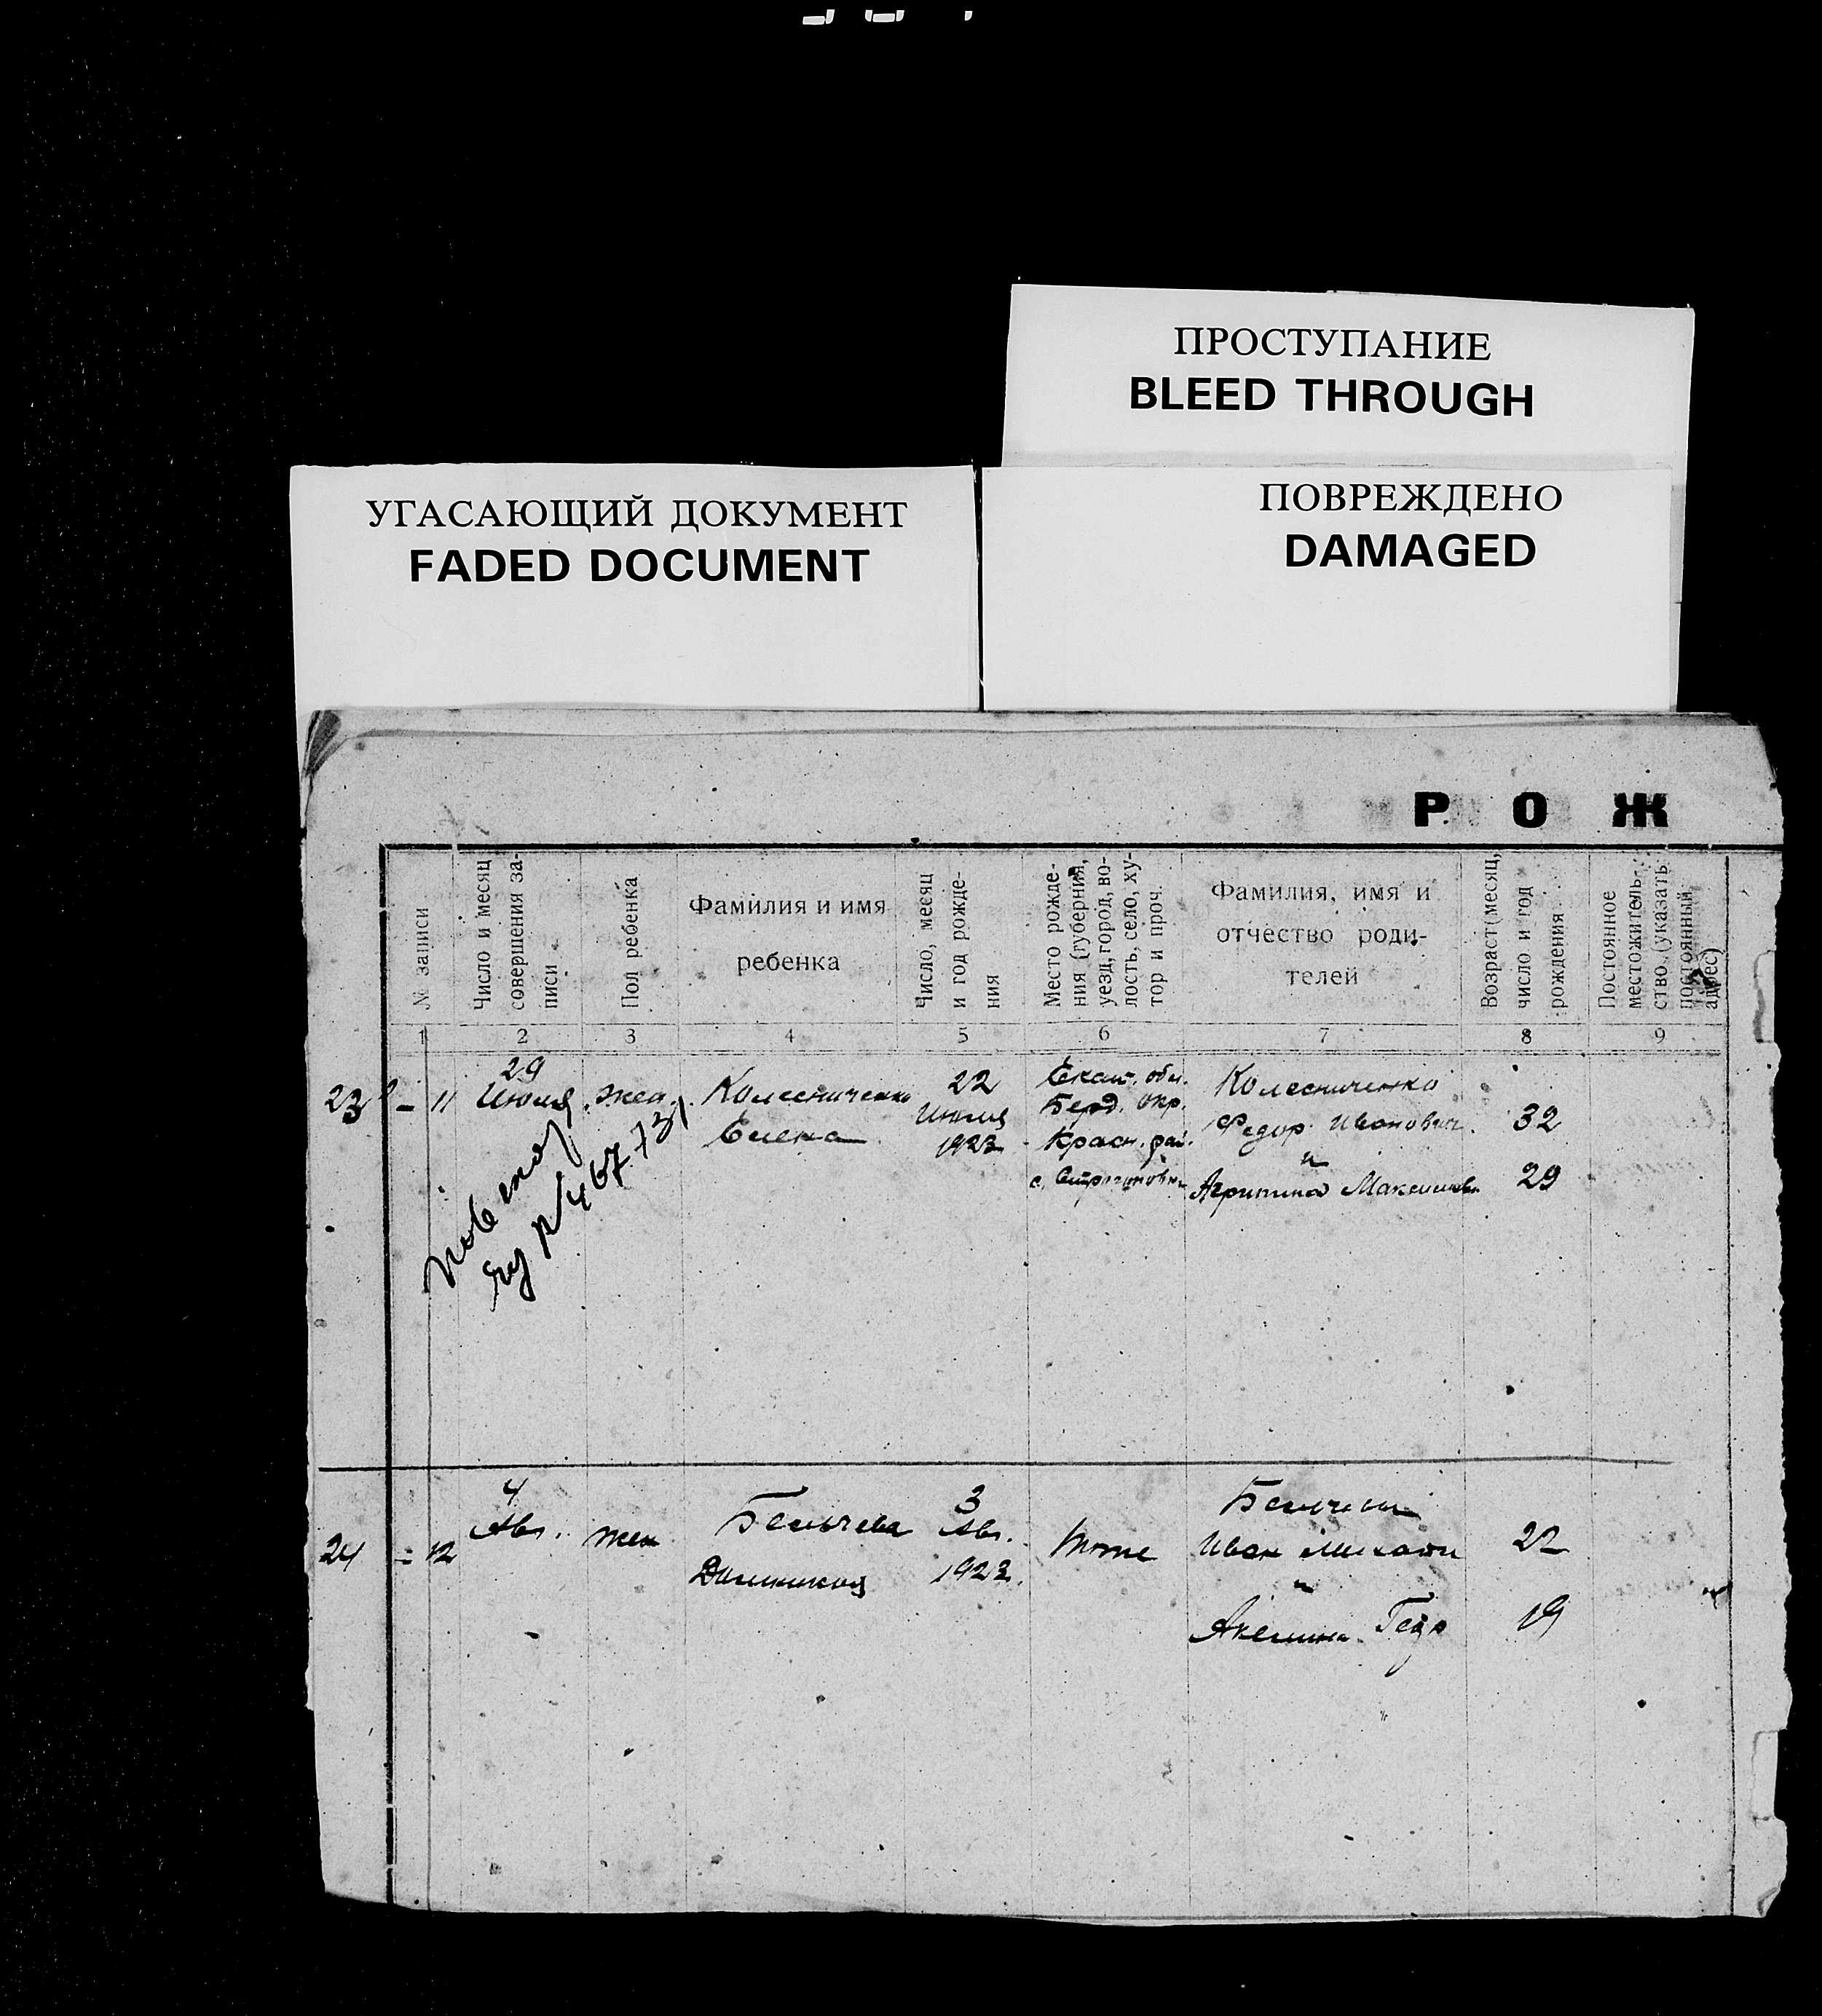 ПРОСТУПАНИЕ
BLEED THROUGH
УГАСАЮЩИЙ ДОКУМЕНТ
FADED DOCUMENT
ПОВРЕЖДЕНО
DAMAGED
Р О Ж
№ записи
Число и месяц
совершения за-
писи
Пол ребенка
Фамилия и имя
ребенка
Число, месяц
и год рожде-
ния
Место рожде-
ния (губерния,
уезд, город, во-
лость, село, ху-
тор и проч.
Фамилия, имя и
отчество роди-
телей
Возраст (месяц,
число и год
рождения
Постоянное
местожитель-
ство (указать
постоянный
адрес)
1 2 3 4 5 6 7 8 9
23 – 11
29
Июля
жен.
Колесниченко
Елена
22
Июля
1923
Екат. обл.
Берд. окр.
Красн. рай.
с.
Колесниченко
Федор Иванович
и
Агрипина Максимовн
32
29
24 = 12
4
Авг.
жен
Бельчева
3
Авг.
1923.
тоже
Иван
и
22
19